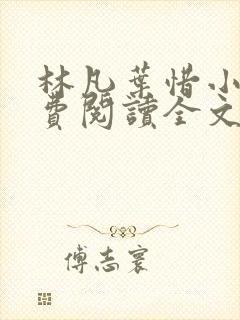 林凡葉惜小
費閱讀全文
傅志寰